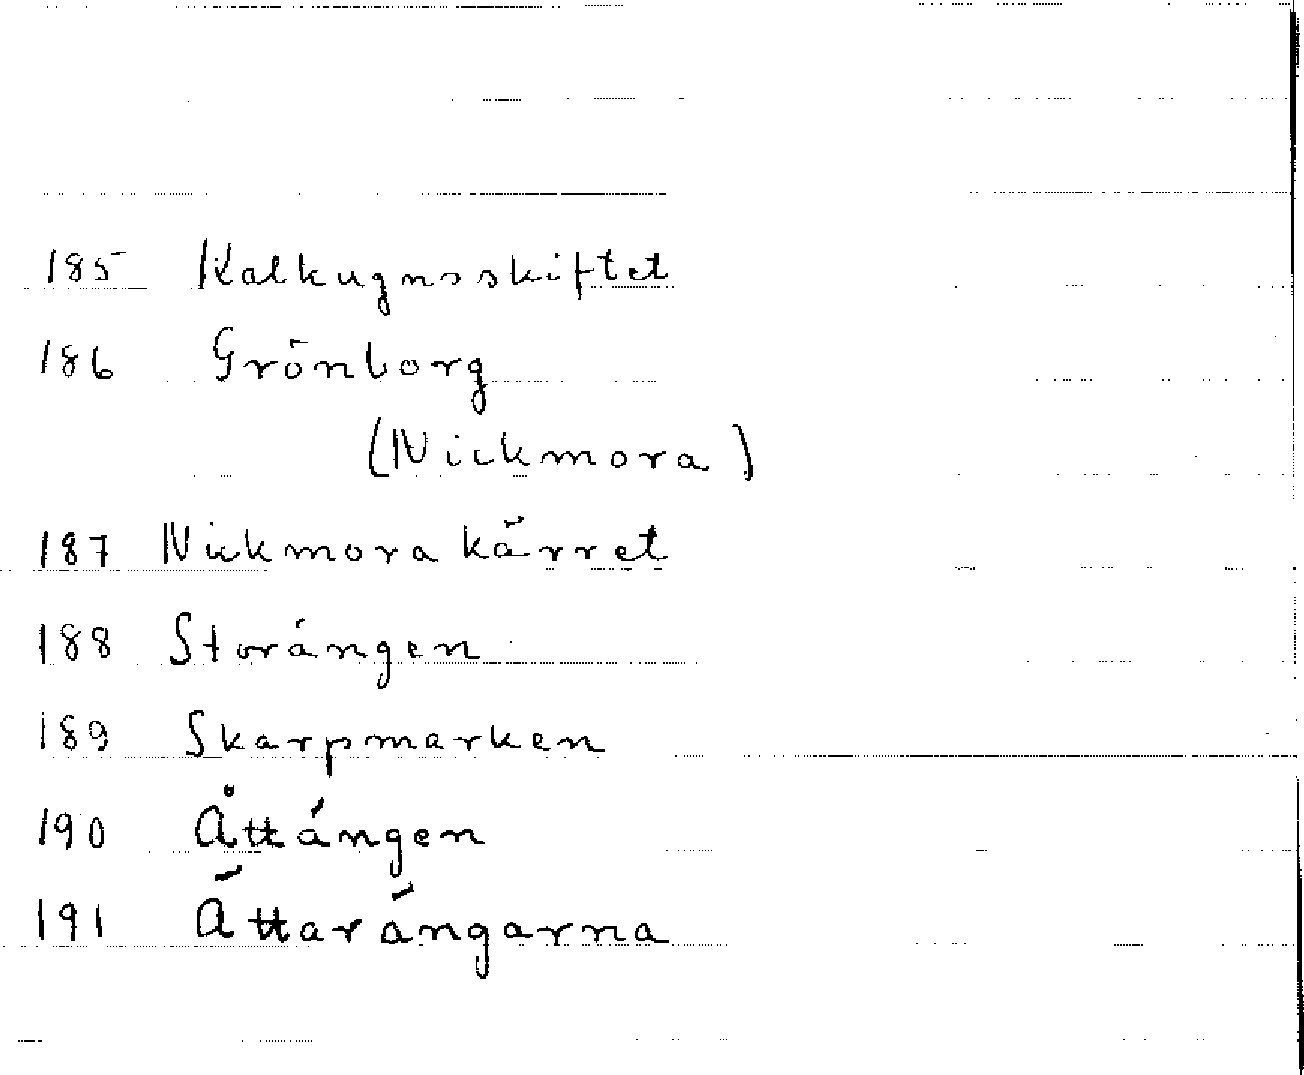 185 Kalkugnsskiftet
186 Grönborg
(Nickmora)
187 Nickmora kärret
188 Storängen
189 Skarpmarken
190 Åttängen
191 Ättarängarna